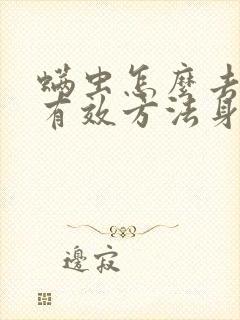 螨虫怎麽去
有效方法身
邊寂